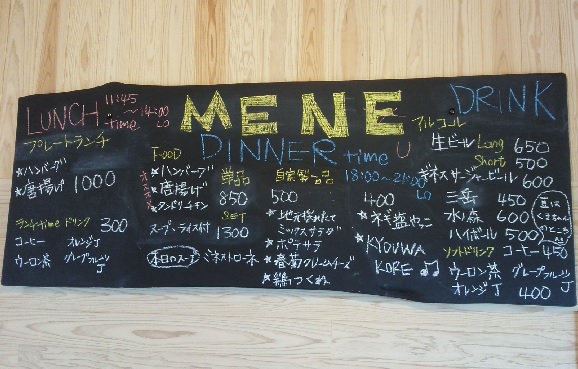 LUNCH time
11:45
～14:00
LO
プレートランチ
★ハンバーグ
★唐揚げ 1000
ランチtime ドリンク 300
コーヒー オレンジJ
ウーロン茶 グレープフルーツJ
MENE
U
DINNER time
18:00～21:00
LO
FOOD
★ハンバーグ
★唐揚げ
★タンドリーチキン
単品
850
SET
スープ・ライス付 1300
本日のスープ ミネストローネ
自家製一品
500
★地元採れたて
ミックスサラダ
★ポテサラ
★春菊クリームチーズ
★鶏つくね
400
★ネギ塩やっこ
★KYOUWA
KORE ♫
DRINK
アルコール
生ビール Long 650
Short 500
ギネスサージャービール 600
三岳 450
水森 600
ハイボール 500
ソフトドリンク コーヒー 450
ウーロン茶 グレープフルーツJ
オレンジJ 400